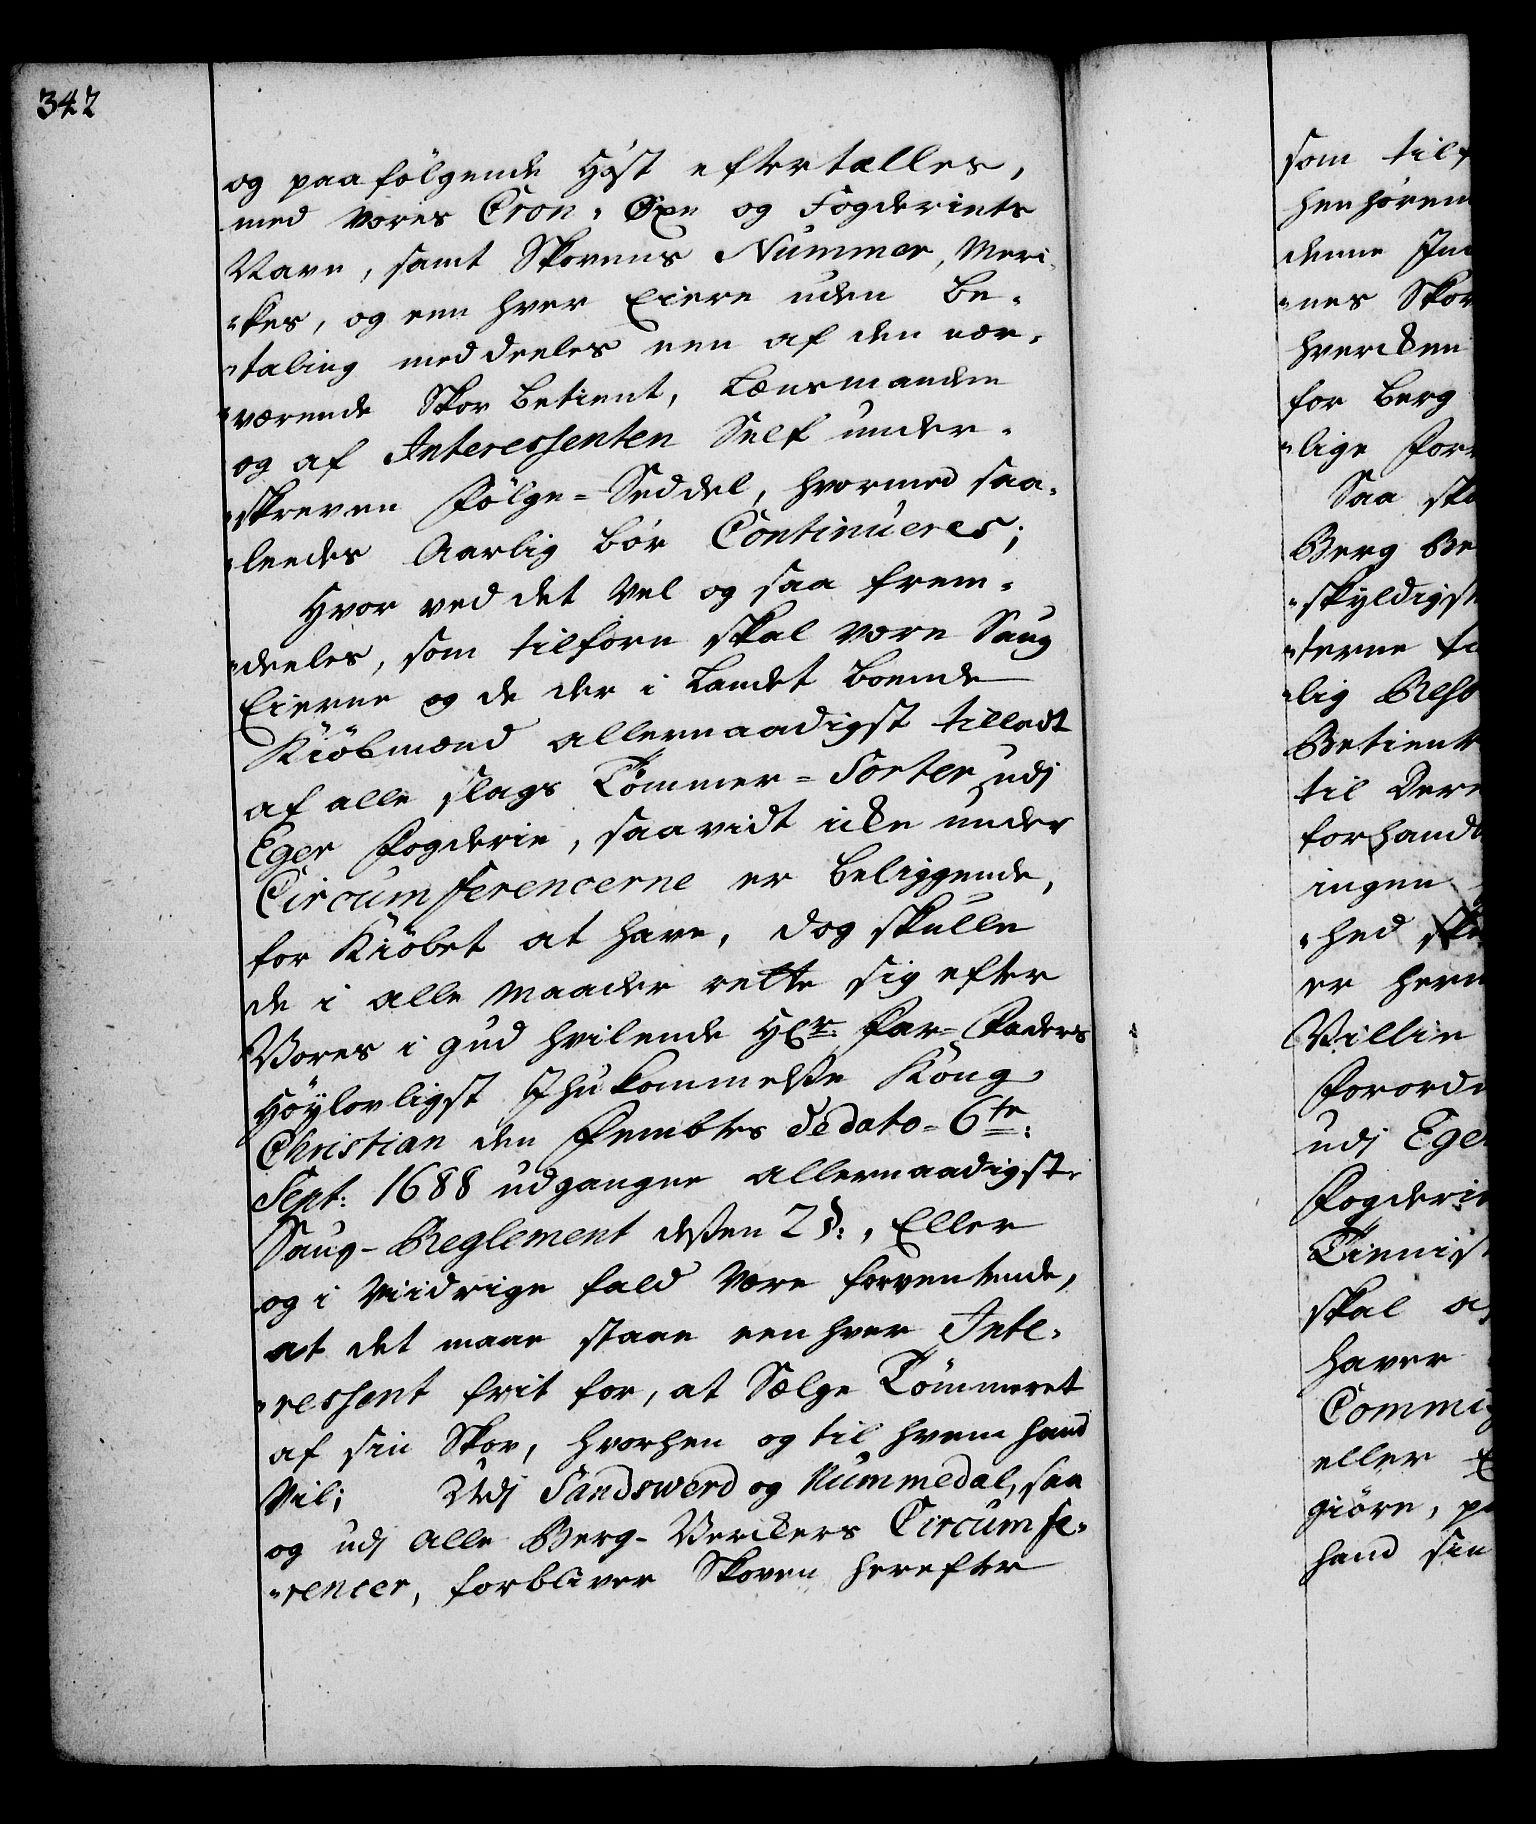 342
og paafölgende Höst eftertælles,
med Vores Cron-Øxe og Fogderiets
Navn, samt Skovens Nummer, Mer-
"kes, og een hver Eiere uden Be-
"taling meddeeles een af den nær-
"værende Skov Betient, Lænsmanden
og af Interessenten Self under-
"skreven Fölge-Seddel, hvormed saa-
"leedes Aarlig bör Continueres;
Hvor ved det vel og saa frem-
"deeles, som tilforn skal være Saug
Eierne og de der i Landet boende
Kiöbmænd allernaadigst tilladt
af alle slags Tömmer-Sorter udj
Eger Fogderie, saavidt icke under
Circumferencerne er beliggende,
for Kiöbet at have, dog skulle
de i alle maader rette sig efter
Vores i Gud hvilende Hr. Far-Faders
Höylovligst Ihukommelße Kong
Christian den Fembtes de dato 6te:
Sept: 1688 udgangne allernaadigste
Saug-Reglement deßen 2 §:, Eller
og i Viidrige fald være forventende,
at det maae staae een hver Inte-
"ressent frit for, at Sælge Tömmeret
af sin Skov, hvorhen og til hvem hand
Vil; Udj Sandsværd og Nummedal, saa
og udj alle Berg-Verckers Circumfe-
"rencer, forbliver Skoven herefter
som tilf
henhören
denne
"nes Skov
hvercken
for Berg
"lige For
Saa ska
Berg Be
"skyldigst
"terne
"lig Reso
Betient
til Der
forhandl
ingen
"hed
er her
Villie
Forord
udj Eger
Fogderie
Tienist
skal
haver
Commi
eller
giöre,
hand sin